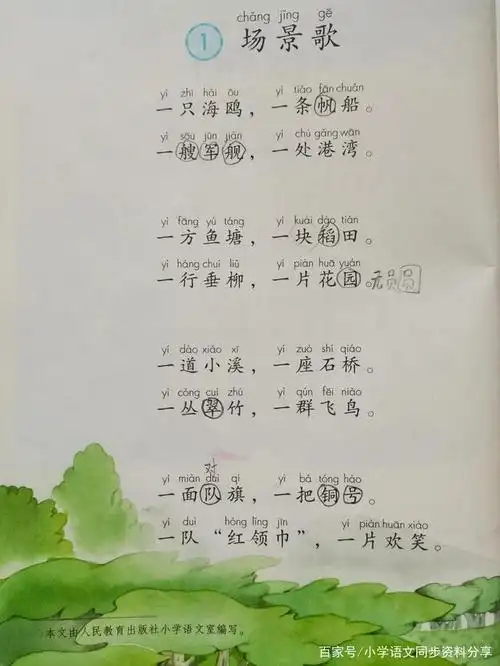 chǎng jǐng gē
1 场景歌
yì zhī hǎi ōu yì tiáo fān chuán
一只海鸥，一条帆船。
yì sōu jūn jiàn yí chù gǎng wān
一艘军舰，一处港湾。
yì fāng yú táng yí kuài dào tián
一方鱼塘，一块稻田。
yì háng chuí liǔ yí piàn huā yuán
一行垂柳，一片花园。元员圆
yí dào xiǎo xī yí zuò shí qiáo
一道小溪，一座石桥。
yì cóng cuì zhú yì qún fēi niǎo
一丛翠竹，一群飞鸟。
对
yí miàn duì qí yì bǎ tóng hào
一面队旗，一把铜号。
yí duì hóng lǐng jīn yí piàn huān xiào
一队“红领巾”，一片欢笑。
本文由人民教育出版社小学语文室编写。
百家号/小学语文同步资料分享